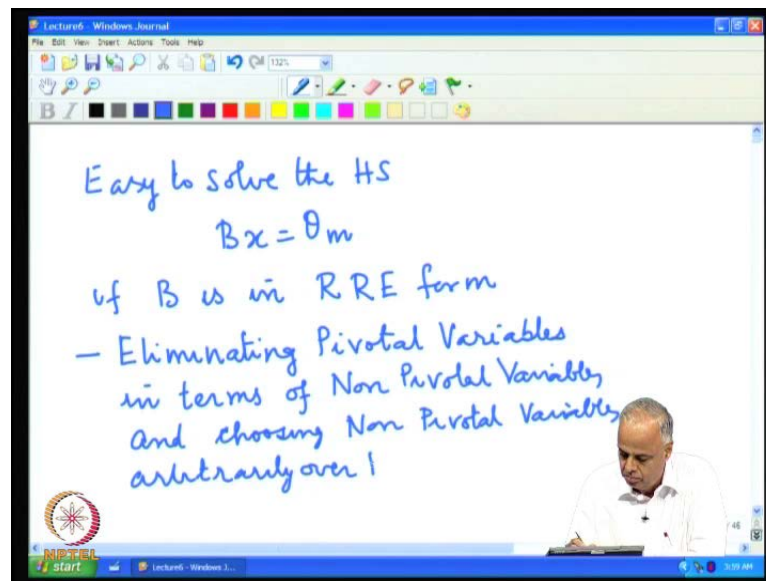 Lecture6 - Windows Journal
File Edit View Insert Actions Tools Help
132%
B I
Easy to solve the HS
Bx = θm
if B is in RRE form
— Eliminating Pivotal Variables
in terms of Non Pivotal Variables
and choosing Non Pivotal Variables
arbitrarily over
/ 46
NPTEL
start
Lecture6 - Windows J...
3:59 AM